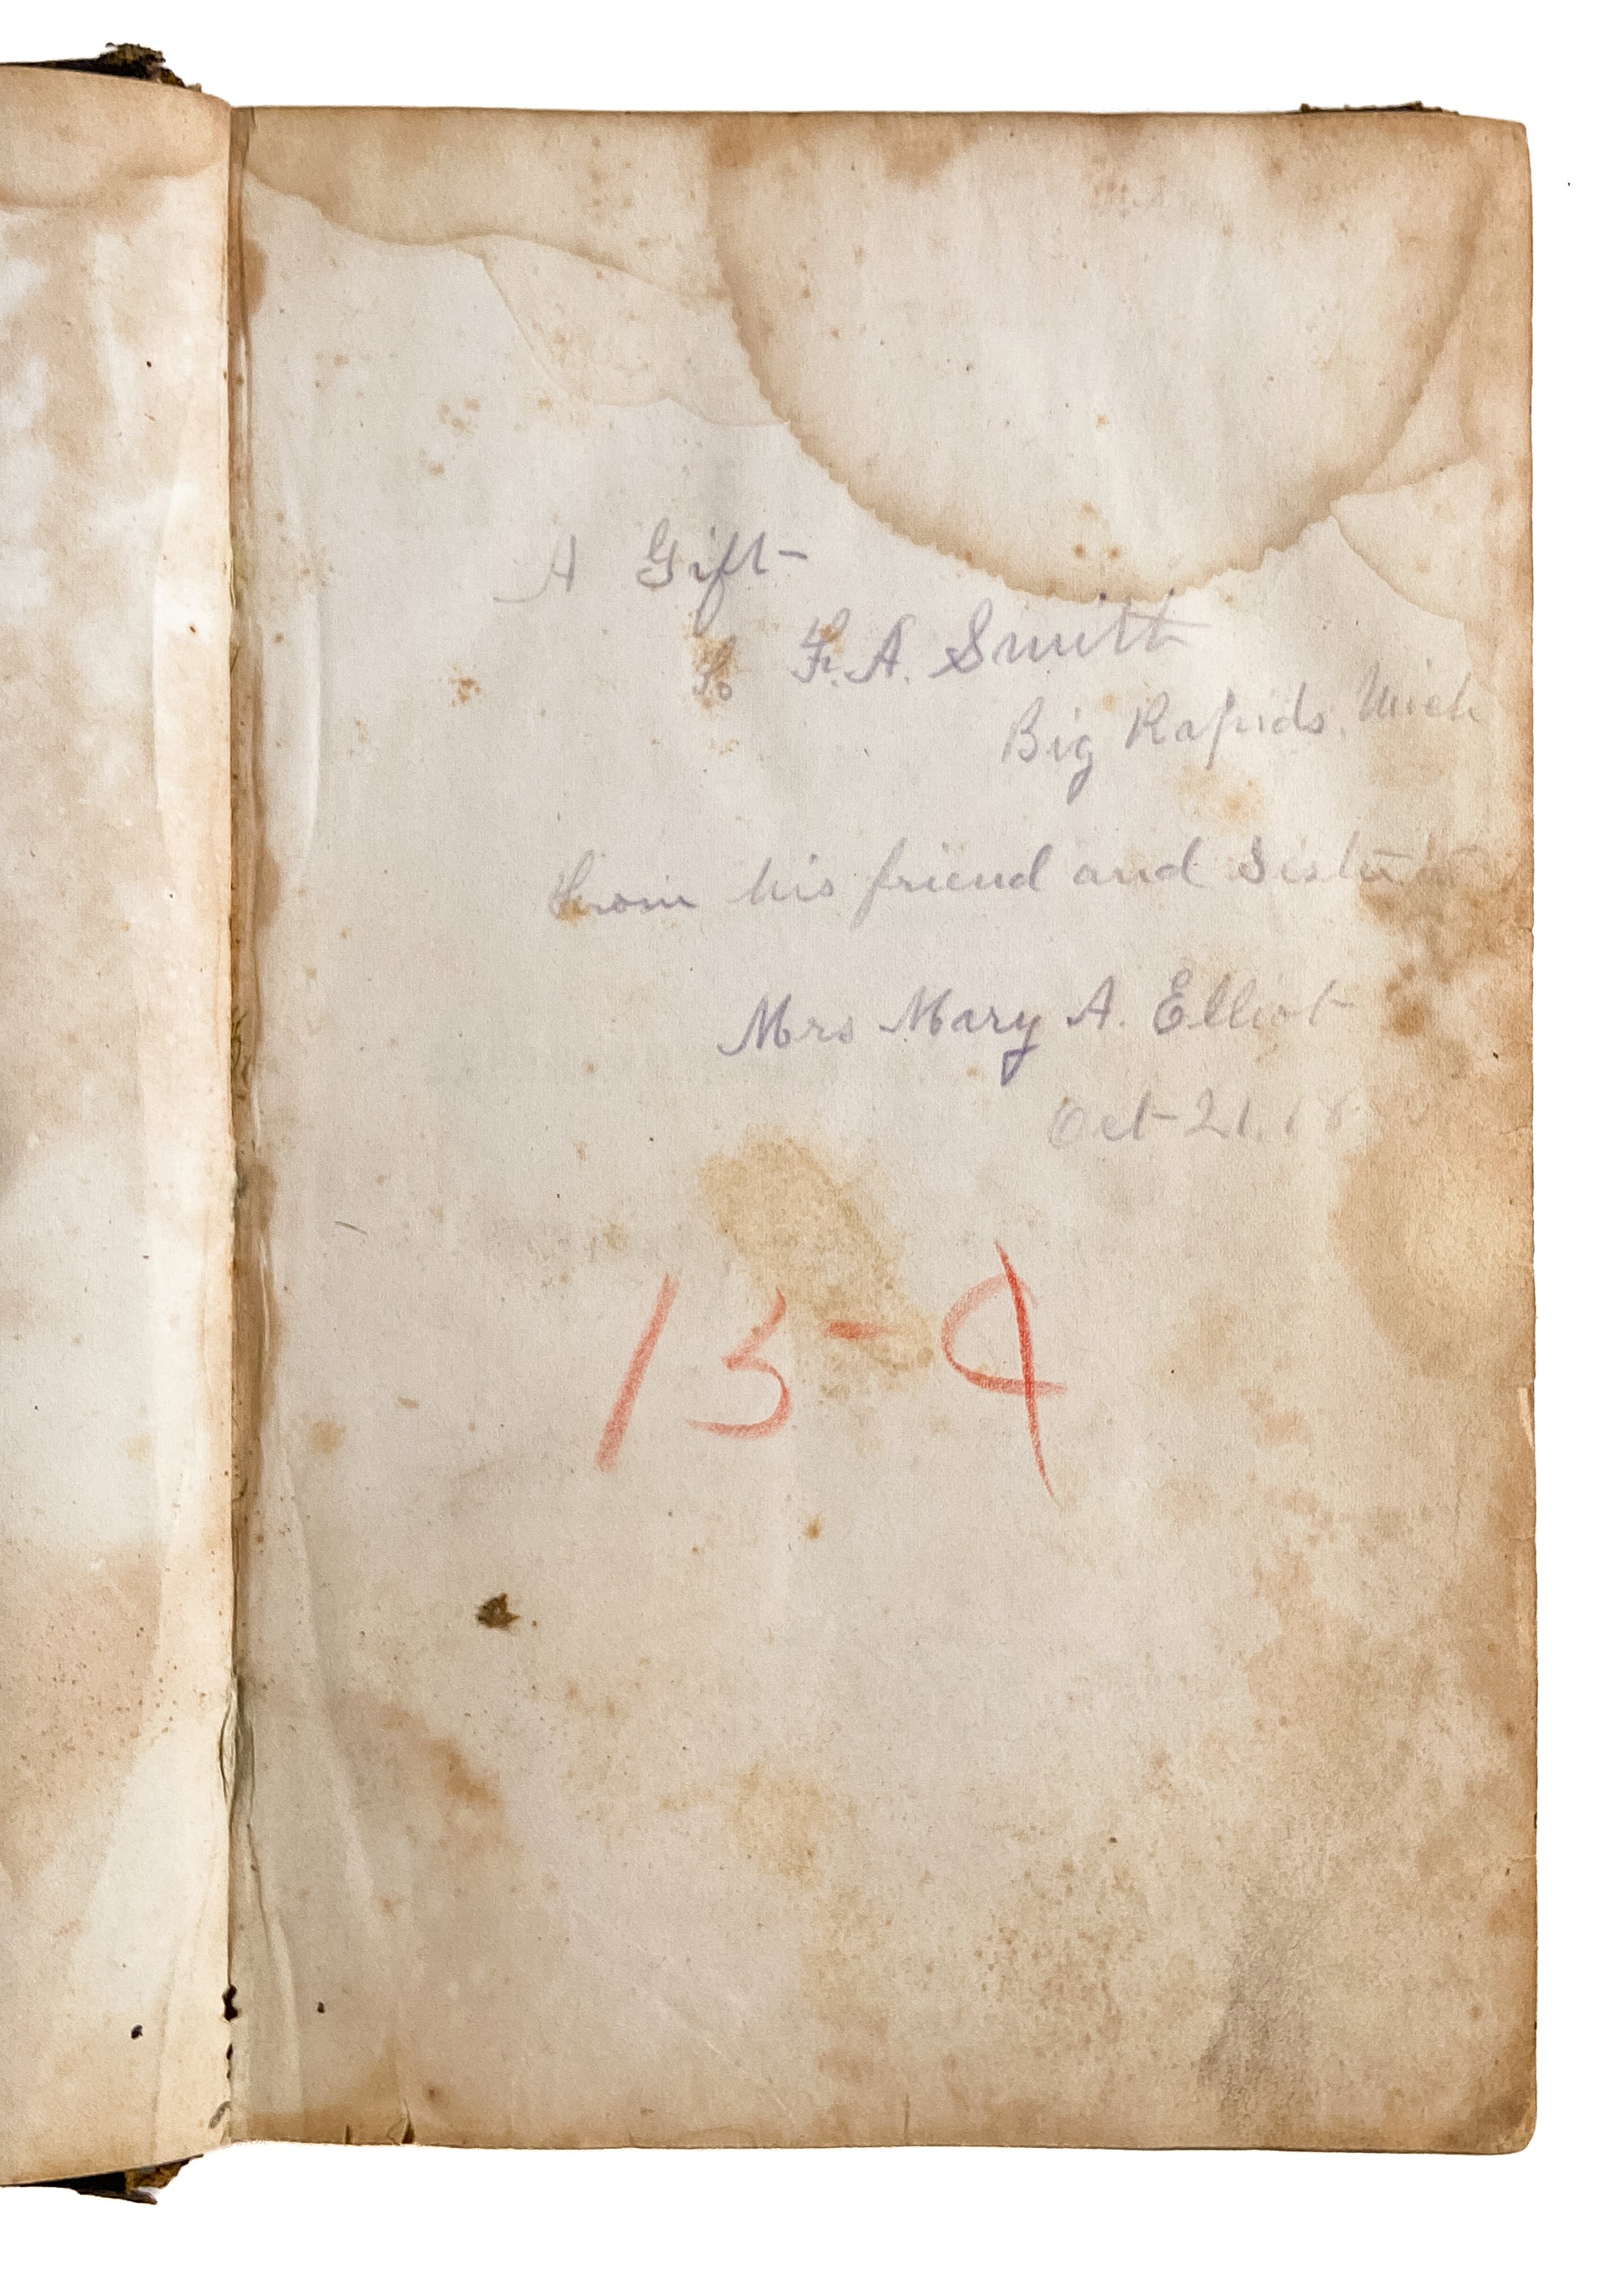 A Gift
To F. A. Smith
Big Rapids, Mich
From his friend and Sister
Mrs Mary A. Elliot
Oct 21, 18
15-9